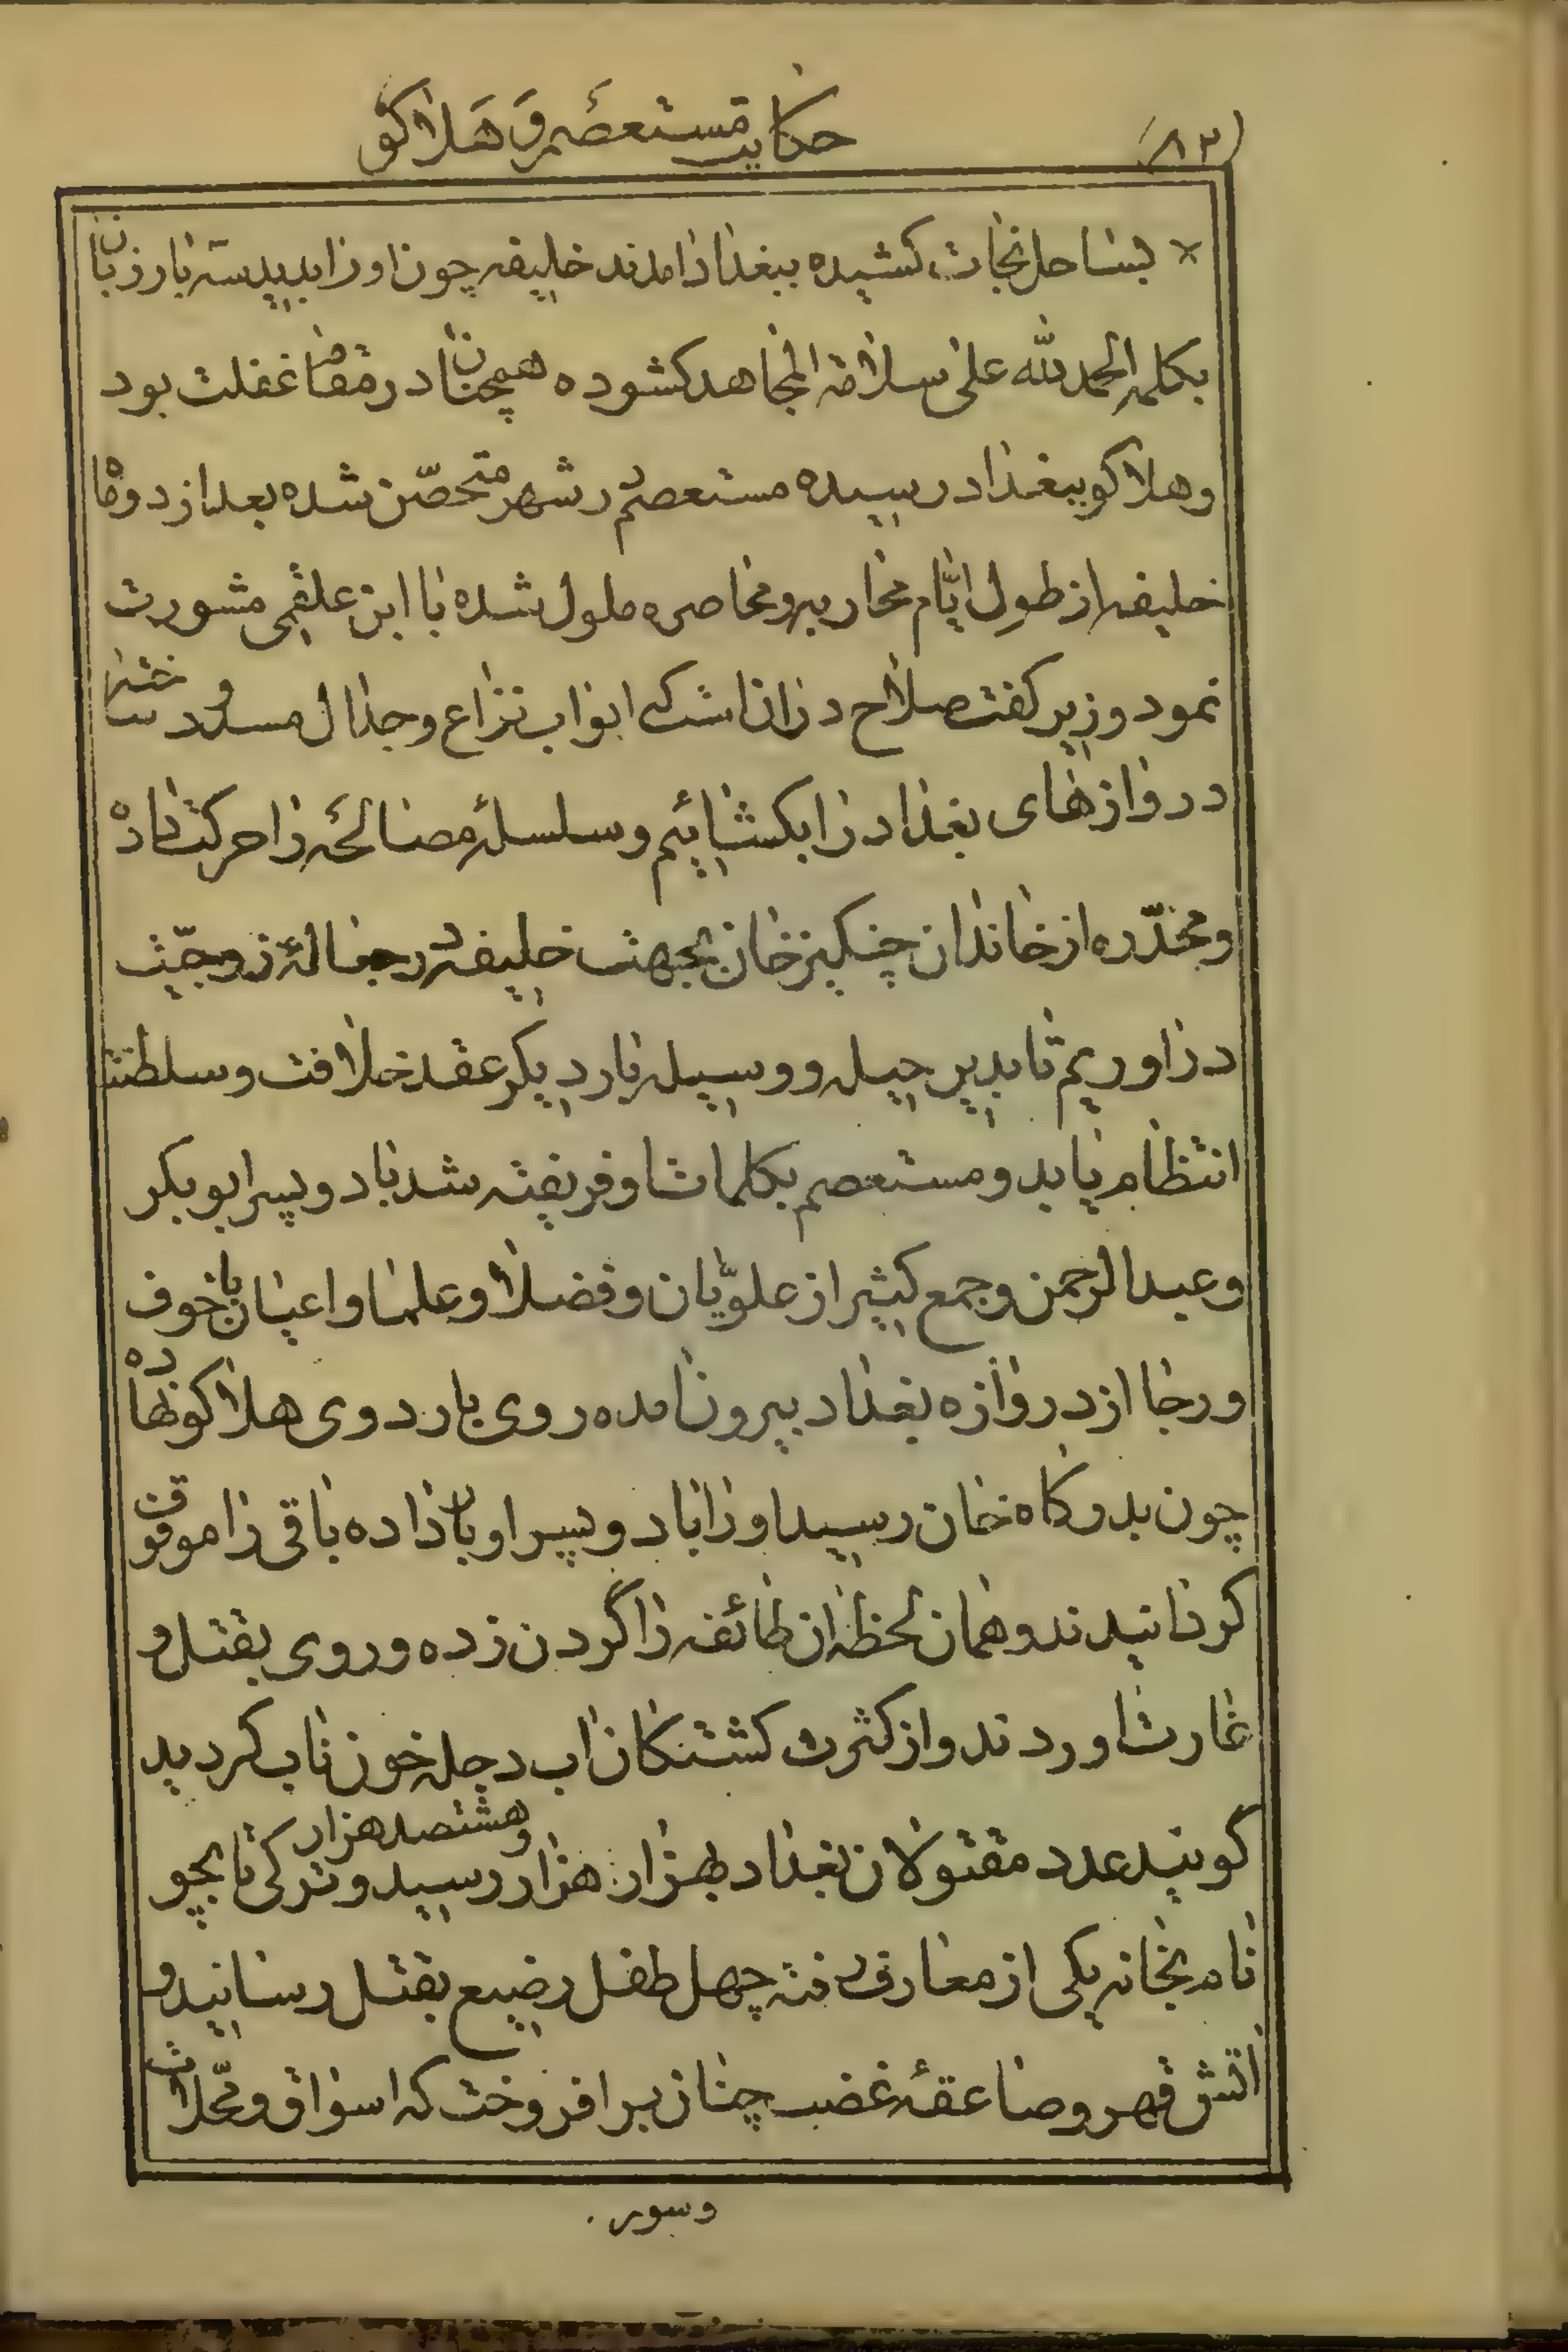 (٨٣)
حکایت مستعصم و هلاکو
بساحل نجات کشیده ببغداد امدند خلیفه چون او را بدید سه بار زبان
بکلمه الحمدلله علی سلامة المجاهد کشوده همچنان در مقام غفلت بود
و هلاکو ببغداد رسیده مستعصم در شهر متحصّن شده بعد از دو ماه
خلیفه از طولِ ایّام محاربه و محاصره ملول شده با ابن علقمی مشورت
نمود وزیر کفت صلاح در انست که ابواب نزاع و جدال مسدود ساخته
دروازهای بغداد را بکشائیم و سلسلهٔ مصالحه را حرکت داده
و مخدّره از خاندان چنکیز خان بجهت خلیفه در حبالهٔ زوجیّت
در اوریم تا بدین حیله و وسیله بار دیکر عقد خلافت و سلطنت
انتظام یابد و مستعصم بکلمات او فریفته شد با دو پسر ابو بکر
و عبدالرحمن و جمع کثیر از علویّان و فضلا و علما و اعیان با خوف
و رجا از دروازه بغداد بیرون امده روی باردوی هلاکو نهاده
چون بدرکاه خان رسید او را با دو پسر او بار داده باقی را موقوف
کردانیدند و همان لحظه ان طائفه را گردن زده و روی بقتل و
غارت اوردند و از کثرت کشتکان اب دجله خون ناب کردید
کویند عدد مقتولان بغداد بهزار هزار و هشتصد هزار رسید و ترکی تابجو
نام بخانه یکی از معارف رفته چهل طفل رضیع بقتل رسانید و
اتش قهر و صاعقهٔ غضب چنان برافروخت که اسواق و محلّات
وسور